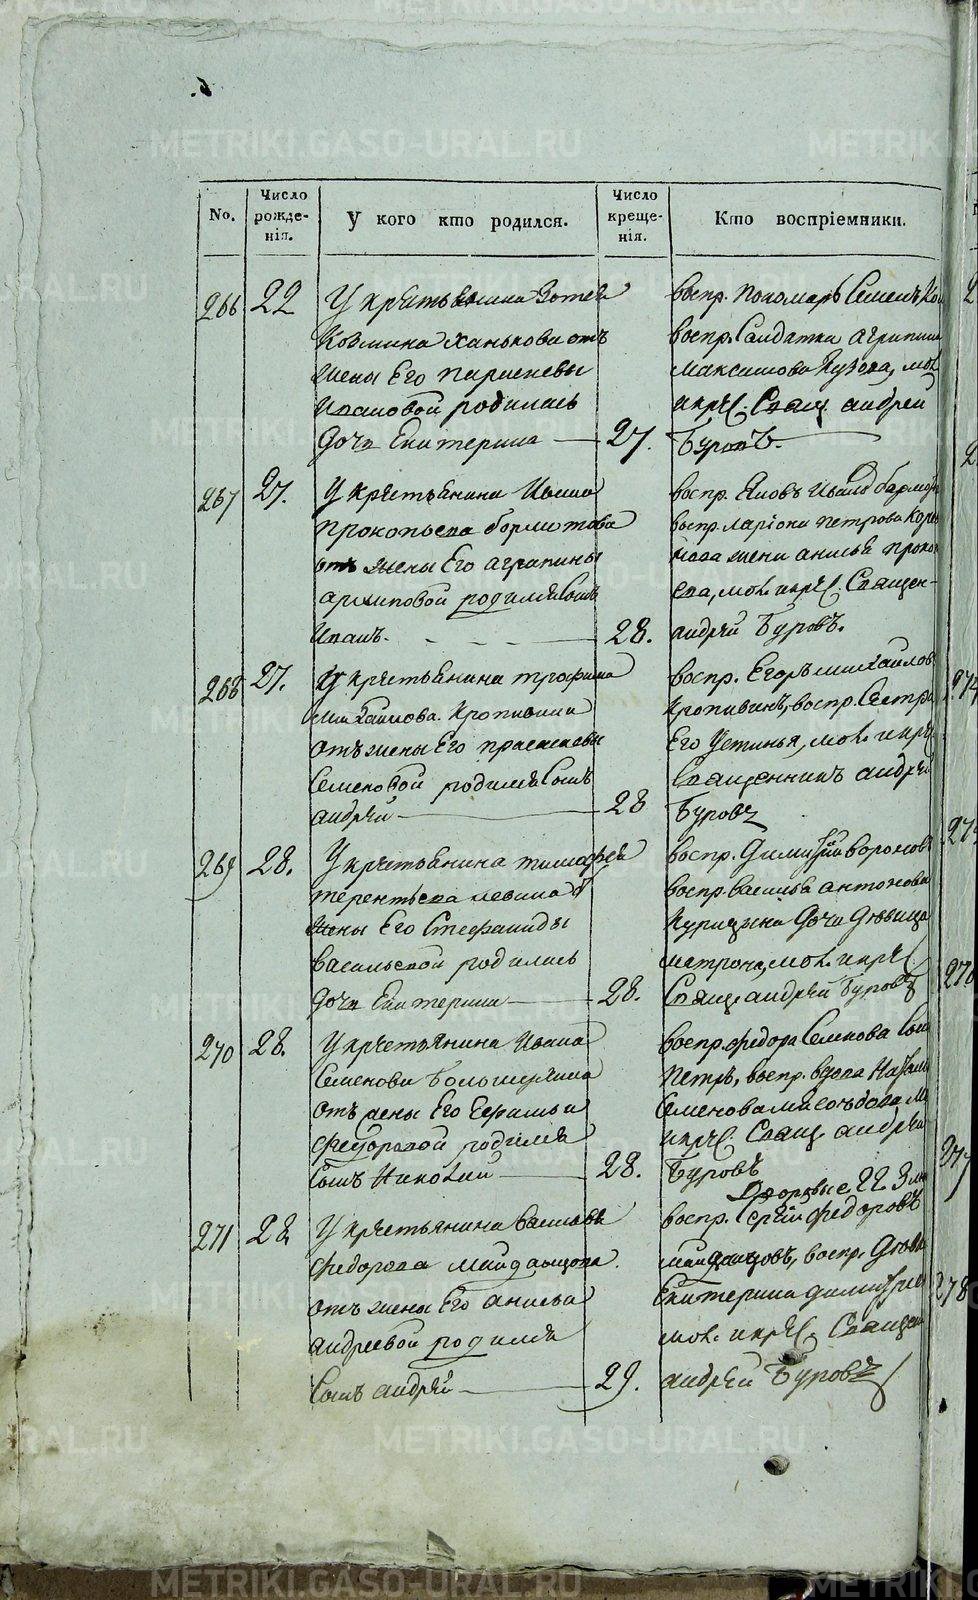 No.
Число рожде- нія.
У кого кто родился.
Число креще- нія.
Кто воспріемники.
266 22 У крестьянина Зотея
Козмина Ханькова отъ
жены Его параскевы
Ивановой родилась
дочь Екатерина 27.
воспр. пономарь Семенъ
воспр. Солдатка агрипина
Максимова мол.
и кр. Свящ. андрей
Буровъ.
267 27. У крестьянина Ивана
прокопьева бормотова
отъ жены Его агрипины
архиповой родился Сынъ
Иванъ. 28.
воспр. Яковъ Ивановъ
воспр. ларіона петрова
жена анисья
мол. и кр. Священ-
андрей Буровъ.
268 27. У крестьянина трофима
Михайлова Кропивина
отъ жены Его праскевы
Семеновой родился Сынъ
андрей 28
воспр. Егоръ михайловъ
Кропивинъ, воспр. Сестра
Его Устинья, мол. и кр.
Священникъ андрей
Буровъ
269 28. У крестьянина тимофея
терентьева левина от
жены Его Стефаниды
Васильевой родилась
дочь Екатерина 28.
воспр. Димитрій Вороновъ
воспр. Василья антонова
Курицына дочь дѣвица
матрона, мол. и кр.
Свящ. андрей Буровъ
270 28. У крестьянина Ивана
Семенова
отъ жены Его Ефимьи
Федоровой родился
Сынъ Николай 28.
воспр. федора Семенова Сын
Петръ, воспр. вдова
Семенова
и кр. Свящ. андрей
Буровъ
271 28 У крестьянина Василья
Федорова майданцова
отъ жены Его анисьи
андреевой родился
Сынъ андрей 29.
воспр. Сергій федоровъ
майданцовъ, воспр. дѣвка
Екатерина димитріева
мол. и кр. Священ
андрей Буровъ
METRIKI.GASO-URAL.RU